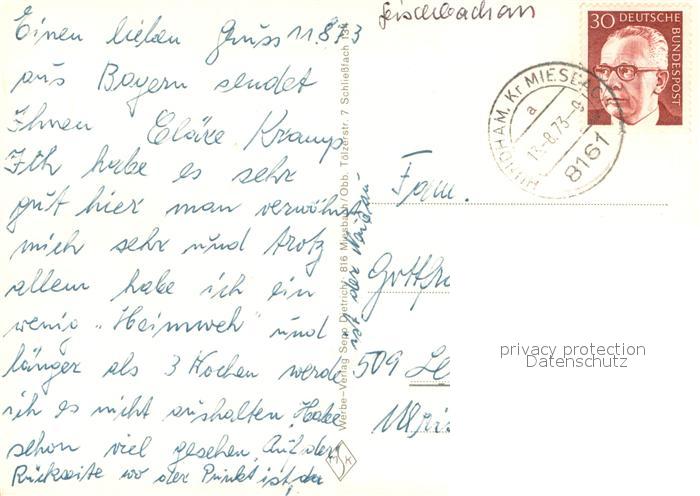 Einen lieben Gruss 11.8.73
aus Bayern sendet
Ihnen Kramp.
Ich habe es sehr
gut hier man verwöhnt
mich sehr und trotz
allem habe ich ein
wenig "Heimweh" und
länger als 3 Wochen werde
ich es nicht aushalten. Habe
schon viel gesehen. Auf der
Rückseite wo der Punkt ist, da
ist der
Werbe-Verlag Sepp Dietrich, 816 Miesbach/Obb. Tölzerstr. 7 Schließfach 134
30 DEUTSCHE
BUNDESPOST
HUNDHAM, Kr MIESBACH
a
13.-8.73-9
8161
Fam.
Gottfr
509 Le
privacy protection
Datenschutz